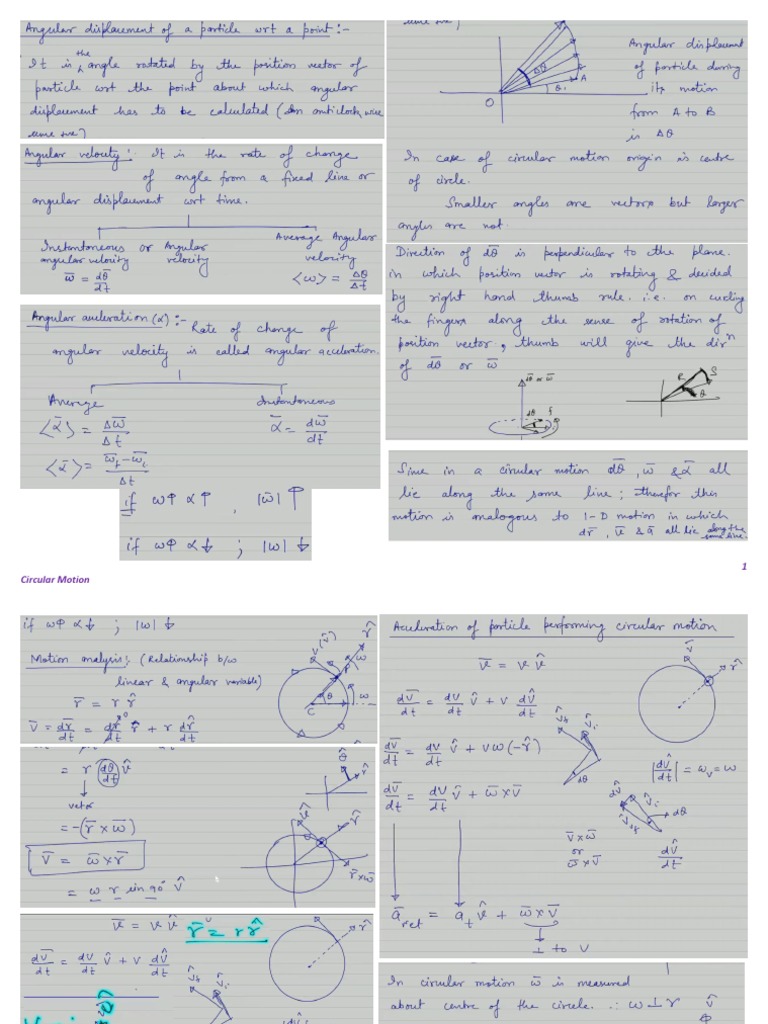 Angular displacement of a particle wrt a point:-
It is the angle rotated by the position vector of
particle wrt the point about which angular
displacement has to be calculated (In anticlock wise
sense +ve)
Angular velocity:- It is the rate of change
of angle from a fixed line or
angular displacement wrt time.
Instantaneous or Angular
angular velocity velocity
ω̄ = dθ̄/dt
Average Angular
velocity
⟨ω⟩ = Δθ/Δt
Angular acceleration (α):-
Rate of change of
angular velocity is called angular acceleration.
Average Instantaneous
⟨ᾱ⟩ = Δω̄/Δt ᾱ = dω̄/dt
⟨ᾱ⟩ = (ω̄f - ω̄i)/Δt
if ω↑ α↑ , |ω̄| ↑
if ω↑ α↓ ; |ω| ↓
Δθ
θ₁
A
O
Angular displacement
of particle during
its motion
from A to B
is Δθ
In case of circular motion origin is centre
of circle.
Smaller angles are vectors but larger
angles are not.
Direction of dθ̄ is perpendicular to the plane
in which position vector is rotating & decided
by right hand thumb rule. i.e. on curling
the fingers along the sense of rotation of
position vector, thumb will give the dirⁿ
of dθ̄ or ω̄
dθ̄ or ω̄
dθ
R S
θ
Since in a circular motion dθ̄, ω̄ & ᾱ all
lie along the same line; therefor this
motion is analogous to 1-D motion in which
dr̄, v̄ & ā all lie along the
same line.
1
Circular Motion
if ω↑ α↓ ; |ω| ↓
Motion analysis:- (Relationship b/w
linear & angular variable)
r̄ = r r̂
v̄ = dr̄/dt = dr/dt r̂ + r dr̂/dt
θ ω
C
= r (dθ/dt) v̂
vector
= -(r̄ × ω̄)
v̄ = ω̄ × r̄
= ω r sin 90° v̂
r̄ × ω̄
v̄ = v v̂
r̄ = r r̂
dv̄/dt = dv/dt v̂ + v dv̂/dt
Acceleration of particle performing circular motion
v̄ = v v̂
dv̄/dt = dv/dt v̂ + v dv̂/dt
dv̄/dt = dv/dt v̂ + vω(-r̂)
|dv̂/dt| = ωv = ω
dv̄/dt = dv/dt v̂ + ω̄ × v̄
dθ
v̄ × ω̄
or
ω̄ × v̄
dv̂/dt
ā_net = a_t v̂ + ω̄ × v̄
⊥ to v
In circular motion ω̄ is measured
about centre of the circle. ∴ ω ⊥ r